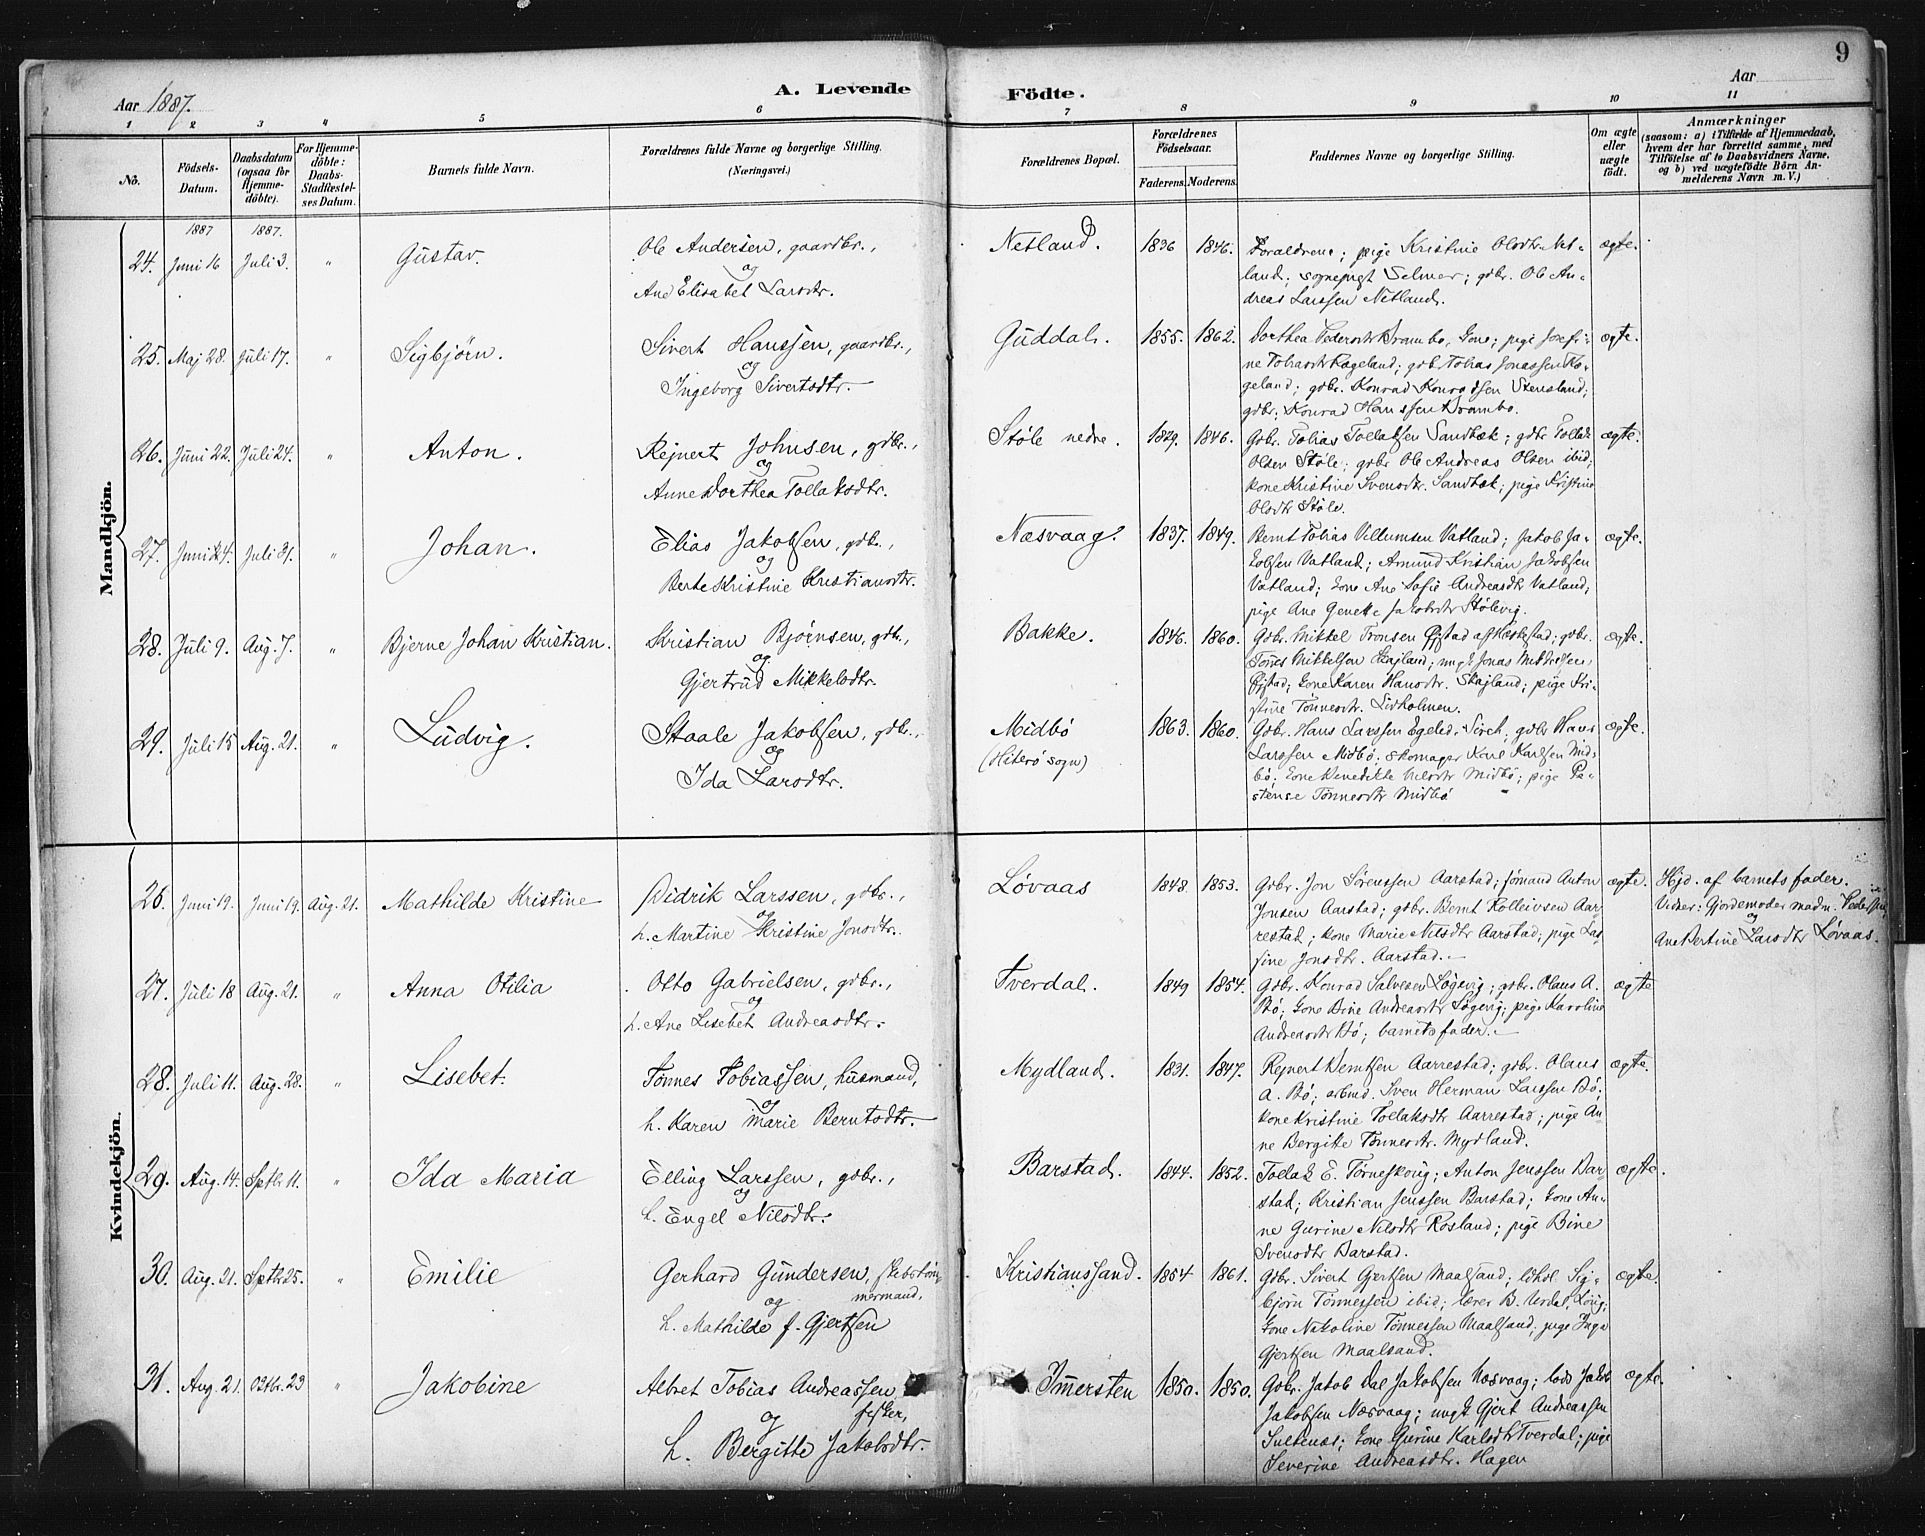 9
A. Levende Födte.
Aar 1887.
Aar
1 2 3 4 5 6 7 8 9 10 11
No.
Födsels-Datum.
Daabsdatum (ogsaa for Hjemme-döbte).
For Hjemme-döbte: Daabs-Stadfæstel-ses Datum.
Barnets fulde Navn.
Forældrenes fulde Navne og borgerlige Stilling. (Næringsvei.)
Forældrenes Bopæl.
Forældrenes Födselsaar.
Faderens. Moderens.
Faddernes Navne og borgerlige Stilling.
Om ægte eller uægte födt.
Anmærkninger
(saasom: a) i Tilfælde af Hjemmedaab, hvem der har forrettet samme, med Tilföielse af to Daabsvidners Navne, og b) ved uægtefödte Börn An-melderens Navn m. V.)
Mandkjön.
1887 1887.
24. Juni 16 Juli 3. " Gustav.
Ole Andersen, gaardbr.,
og
Ane Elisabet Larsdtr.
Netland. 1836 1846.
Forældrene; pige Kristine Olsdtr. Net-
land; sogneprest Selmer; gdbr. Ole An-
dreas Larssen Netland.
ægte.
25. Maj 28. Juli 17. " Sigbjørn.
Sivert Hanssen, gaardbr.,
og
Ingeborg Sivertsdtr.
Guddal. 1855. 1862.
Dorthea Pedersdtr Brambo, kone; pige Josefi-
ne Tobiasdtr Rageland; gdb. Tobias Jonassen Ra-
geland; gdbr. Konrad Konradsen Stensland;
gdbr. Konrad Hanssen Brambo.
ægte.
26. Juni 22. Juli 24. " Anton.
Rejnert Johnsen, gdbr.,
og
Anne Dorthea Tollaksdtr.
Støle nedre. 1829. 1846.
Gdbr. Tobias Tollaksen Sandbæk; gdbr Tollak
Olsen Støle; gdbr Ole Andreas Olsen ibid;
kone Kristine Svensdtr. Sandbæk; pige Kristine
Olsdtr Støle.
ægte.
27. Juni 24. Juli 31. " Johan.
Elias Jakobsen, gdbr.,
og
Berte Kristine Kristiansdtr.
Næsvaag. 1837. 1849.
Bernt Tobias Villumsen Vatland; Jakob Ja-
kobsen Vatland; Amund Kristian Jakobsen
Vatland; kone Ane Sofie Andreasdtr Vatland;
pige Ane Genette Jakobsdtr Stølsvig.
ægte.
28. Juli 9. Aug. 7. " Bjerne Johan Kristian.
Kristian Bjørnsen, gdbr.,
og
Gjertrud Mikkelsdtr.
Bakke. 1846. 1860.
Gdbr. Mikkel Tronsen Øfstad af Heskestad; gdbr.
Tønnes Mikkelsen Skajland; ungk Jonas Mikkelsen
Øfstad; kone Karen Hansdtr. Skajland; pige Kri-
stine Tønnesdtr. Lidholmen.
ægte.
29. Juli 15 Aug. 21. " Ludvig.
Staale Jakobsen, gdbr.,
og
Ida Larsdtr.
Midbø
(Hiterø sogn)
1863. 1860.
Gdbr. Hans Larssen Egeled, gdbr Hans
Larssen Midbø; skomager Karl Karlsen Mid-
bø; kone Benedikte Nilsdtr Midbø; pige
Tønnesdtr Midbø
ægte.
Kvindekjön.
26. Juni 19. Juni 19. Aug. 21. Mathilde Kristine
Didrik Larssen, gdbr.,
og
h. Martine Kristine Jonsdtr.
Løvaas 1848. 1853.
Gdbr. Jon Sørenssen Aarstad; sømand Anton
Jonsen Aarstad; gdbr. Bernt Rolleivsen Aar-
restad; kone Marie Nilsdtr Aarstad; pige Las-
sine Jonsdtr. Aarstad.
ægte.
Hjd. af barnets fader.
Vidner: Gjordemoder madm. Pedersen
og
Ane Bertine Larsdtr Løvaas.
27. Juli 18 Aug. 21. " Anna Otilia
Otto Gabrielsen, gdbr.,
og
h. Ane Lisebet Andreasdtr.
Tverdal. 1849 1854.
Gdbr. Konrad Salvesen Løgevig; gdbr. Olaus A.
Bø; kone Bine Andreasdtr Løgevig; pige Karoline
Andreasdtr Bø; barnets fader.
ægte
28. Juli 11. Aug. 28. " Lisebet.
Tønnes Tobiassen, husmand,
og
h. Karen Marie Berntsdtr.
Mydland. 1831. 1847.
Rejnert Berntsen Aarrestad; gdbr. Olaus
A. Bø; arbmd. Sven Herman Larssen Bø;
kone Kristine Tollaksdtr Aarrestad; pige An-
ne Bergitte Tønnesdtr. Mydland.
ægte.
29. Aug. 14. Septbr 11. " Ida Maria
Elling Larssen, gdbr.,
og
h. Engel Nilsdtr.
Barstad. 1844. 1852.
Tollak E. Tørneskoug; Anton Jenssen Bar-
stad; Kristian Jenssen Barstad; kone An-
ne Gurine Nilsdtr Rosland; pige Bine
Svensdtr Barstad.
ægte.
30. Aug. 21. Septbr 25. " Emilie
Gerhard Gundersen, skibstøm-
mermand,
og
h. Mathilde f. Gjertsen
Kristianssand. 1854 1861.
Gdbr. Sivert Gjertsen Maalsand; Sig-
bjørn Tønnessen ibid; lærer B. Urdal,
kone Nakoline Tønnessen Maalsand; pige Inga
Gjertsen Maalsand.
ægte.
31. Aug. 21. Oktbr. 23 " Jakobine
Albret Tobias Andreassen,
fisker,
og
h. Bergitte Jakobsdtr.
Immersten 1850. 1850.
Gdbr. Jakob Dal Jakobsen Næsvaag; lods Jakob
Jakobsen Næsvaag; ungk Gjert Andreassen
Sultenæs; kone Gurine Karlsdtr Tverdal; pige
Severine Andreasdtr. Hagen
ægte.